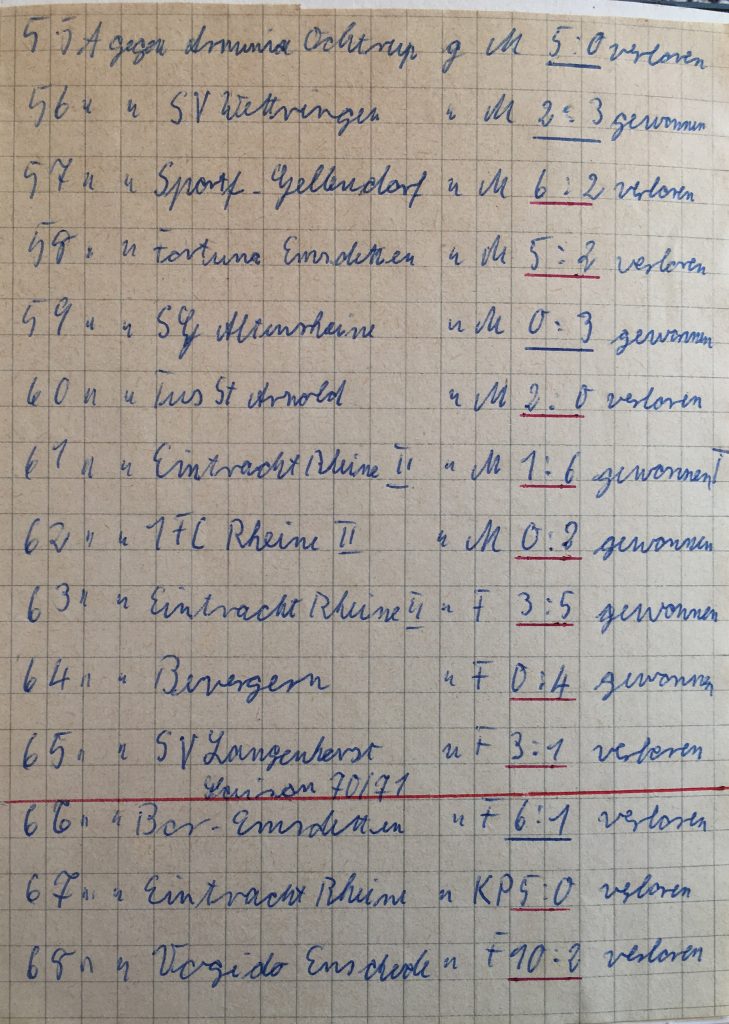 55 A gegen Arminia Ochtrup g M 5:0 verloren
56 " " SV Wettringen " M 2:3 gewonnen
57 " " Sportf-Gellendorf " M 6:2 verloren
58 " " Fortuna Emsdetten " M 5:2 verloren
59 " " SG Altenrheine " M 0:3 gewonnen
60 " " Tus St Arnold " M 2:0 verloren
61 " " Eintracht Rheine II " M 1:6 gewonnen
62 " " 1 FC Rheine II " M 0:2 gewonnen
63 " " Eintracht Rheine II " F 3:5 gewonnen
64 " " Bevergern " F 0:4 gewonnen
65 " " SV Langenhorst " F 3:1 verloren
Saison 70/71
66 " " Bor-Emsdetten " F 6:1 verloren
67 " " Eintracht Rheine " KP 5:0 verloren
68 " " Vogido Enschede " F 10:2 verloren